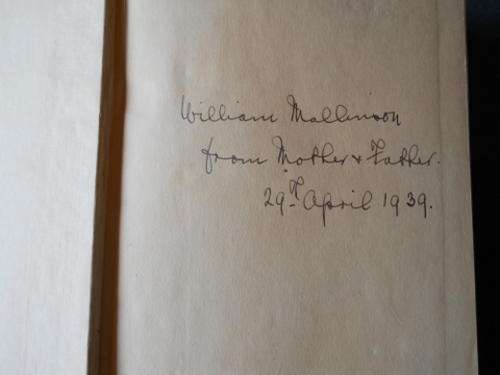 William Mallinson
from Mother & Father.
29th April 1939.